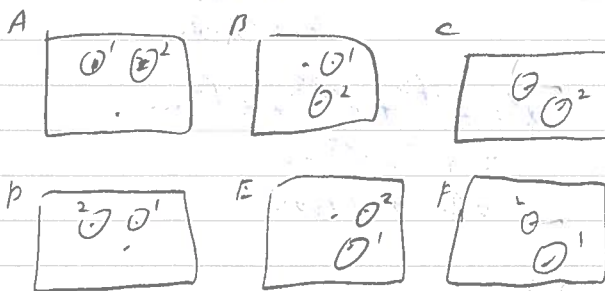 A 1 2 B 1 2 C 2
D 2 1 E 2 1 F 2 1